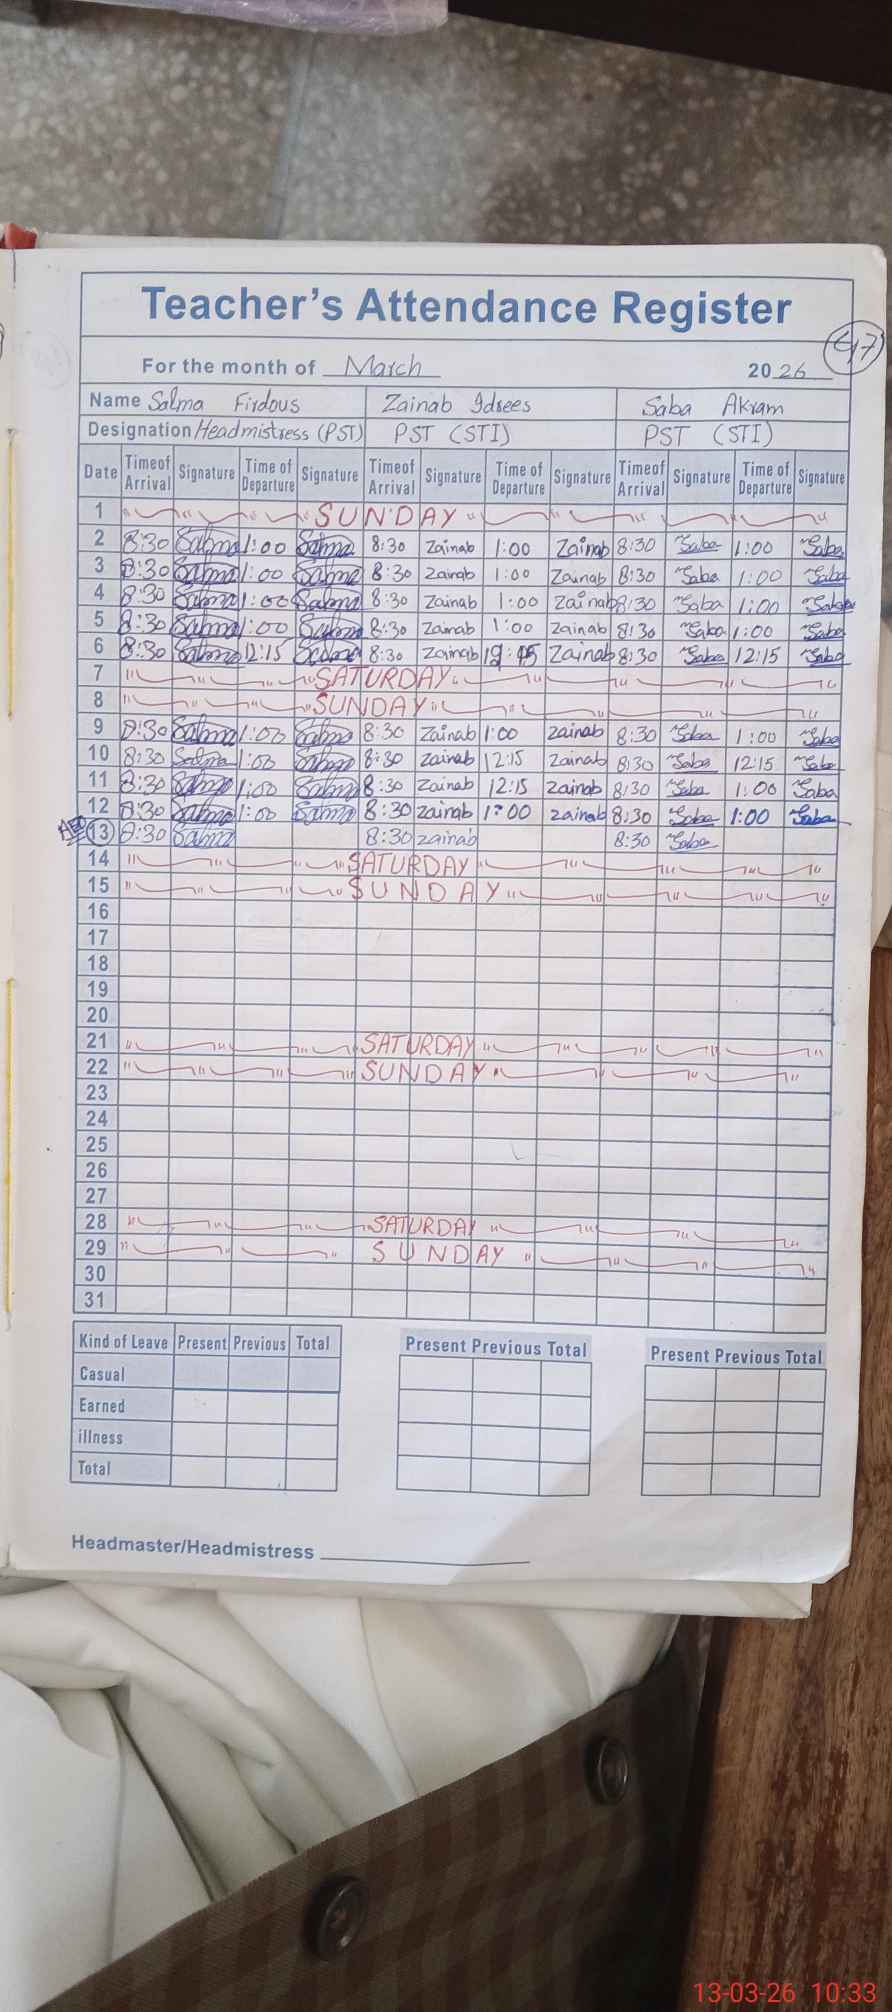 Teacher's Attendance Register
47
For the month of March 2026
Name Salma Firdous Zainab Idrees Saba Akram
Designation Headmistress (PST) PST (STI) PST (STI)
Date Timeof Arrival Signature Time of Departure Signature Timeof Arrival Signature Time of Departure Signature Timeof Arrival Signature Time of Departure Signature
1 SUNDAY
2 8:30 Salma 1:00 Salma 8:30 Zainab 1:00 Zainab 8:30 Saba 1:00 Saba
3 8:30 Salma 1:00 Salma 8:30 Zainab 1:00 Zainab 8:30 Saba 1:00 Saba
4 8:30 Salma 1:00 Salma 8:30 Zainab 1:00 Zainab 8:30 Saba 1:00 Saba
5 8:30 Salma 1:00 Salma 8:30 Zainab 1:00 Zainab 8:30 Saba 1:00 Saba
6 8:30 Salma 12:15 Salma 8:30 Zainab Zainab 8:30 Saba 12:15 Saba
7 SATURDAY
8 SUNDAY
9 8:30 Salma 1:00 Salma 8:30 Zainab 1:00 zainab 8:30 Saba 1:00 Saba
10 8:30 Salma 1:00 Salma 8:30 Zainab 12:15 zainab 8:30 Saba 12:15 Saba
11 8:30 Salma 1:00 Salma 8:30 Zainab 12:15 zainab 8:30 Saba 1:00 Saba
12 8:30 Salma 1:00 Salma 8:30 zainab 1:00 zainab 8:30 Saba 1:00 Saba
13 8:30 Salma 8:30 zainab 8:30 Saba
14 SATURDAY
15 SUNDAY
16
17
18
19
20
21 SATURDAY
22 SUNDAY
23
24
25
26
27
28 SATURDAY
29 SUNDAY
30
31
Kind of Leave Present Previous Total Present Previous Total Present Previous Total
Casual
Earned
illness
Total
Headmaster/Headmistress
13-03-26 10:33